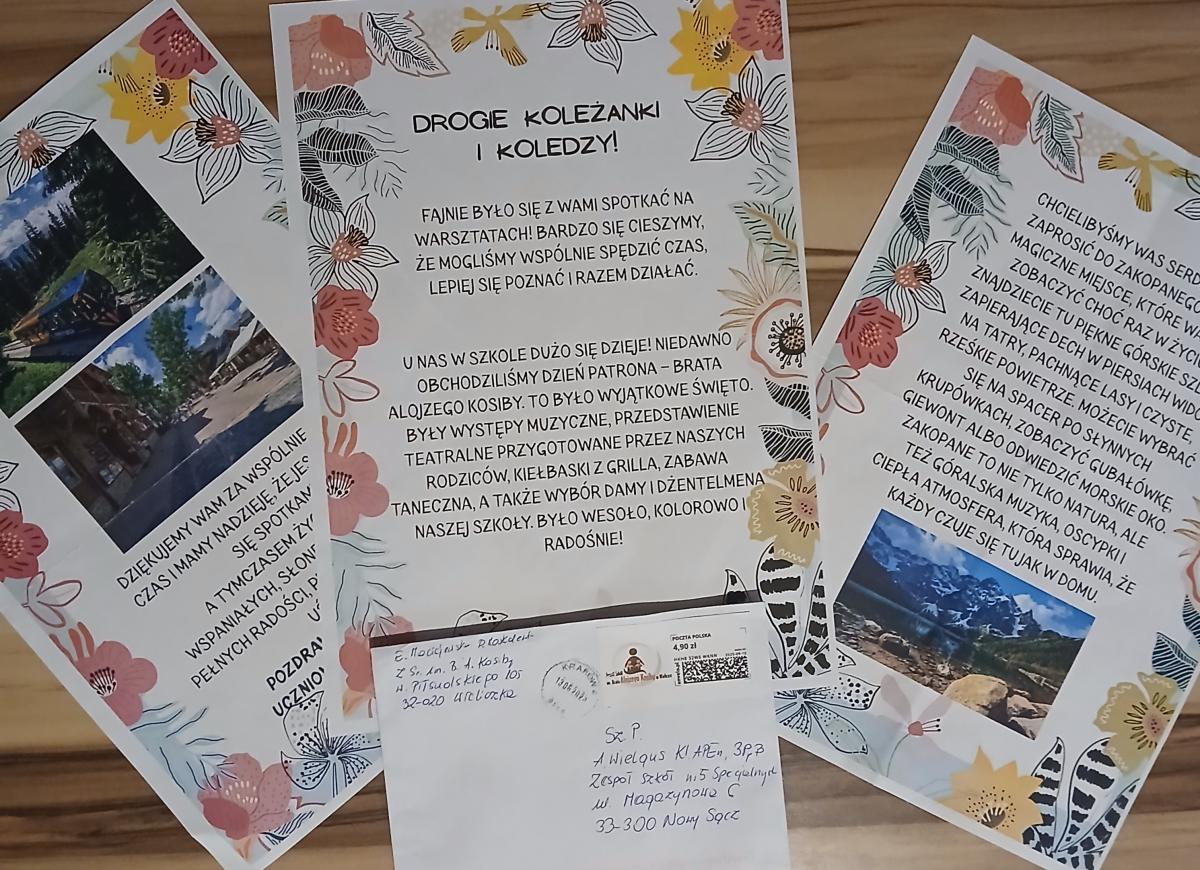 DROGIE KOLEŻANKI
I KOLEDZY!
FAJNIE BYŁO SIĘ Z WAMI SPOTKAĆ NA
WARSZTATACH! BARDZO SIĘ CIESZYMY,
ŻE MOGLIŚMY WSPÓLNIE SPĘDZIĆ CZAS,
LEPIEJ SIĘ POZNAĆ I RAZEM DZIAŁAĆ.
U NAS W SZKOLE DUŻO SIĘ DZIEJE! NIEDAWNO
OBCHODZILIŚMY DZIEŃ PATRONA – BRATA
ALOJZEGO KOSIBY. TO BYŁO WYJĄTKOWE ŚWIĘTO.
BYŁY WYSTĘPY MUZYCZNE, PRZEDSTAWIENIE
TEATRALNE PRZYGOTOWANE PRZEZ NASZYCH
RODZICÓW, KIEŁBASKI Z GRILLA, ZABAWA
TANECZNA, A TAKŻE WYBÓR DAMY I DŻENTELMENA
NASZEJ SZKOŁY. BYŁO WESOŁO, KOLOROWO I
RADOŚNIE!
CHCIELIBYŚMY WAS SER
ZAPROSIĆ DO ZAKOPANEGO
MAGICZNE MIEJSCE, KTÓRE W
ZOBACZYĆ CHOĆ RAZ W ŻYC
ZNAJDZIECIE TU PIĘKNE GÓRSKIE SZ
ZAPIERAJĄCE DECH W PIERSIACH WID
NA TATRY, PACHNĄCE LASY I CZYSTE,
RZEŚKIE POWIETRZE. MOŻECIE WYBRAĆ
SIĘ NA SPACER PO SŁYNNYCH
KRUPÓWKACH, ZOBACZYĆ GUBAŁÓWKĘ,
GIEWONT ALBO ODWIEDZIĆ MORSKIE OKO.
ZAKOPANE TO NIE TYLKO NATURA, ALE
TEŻ GÓRALSKA MUZYKA, OSCYPKI I
CIEPŁA ATMOSFERA, KTÓRA SPRAWIA, ŻE
KAŻDY CZUJE SIĘ TU JAK W DOMU.
DZIĘKUJEMY WAM ZA WSPÓLNIE
CZAS I MAMY NADZIEJĘ, ŻE JES
SIĘ SPOTKAM
A TYMCZASEM ŻY
WSPANIAŁYCH, SŁON
PEŁNYCH RADOŚCI, P
POZDRA
UCZNIO
32-020 Wieliczka
KRAKÓW
POCZTA POLSKA
4,90 zł
Sz. P.
A. Wielgus Kl. APEn, 3Pp3
Zespół Szkół nr 5 Specjalnych
ul. Magazynowa 6
33-300 Nowy Sącz